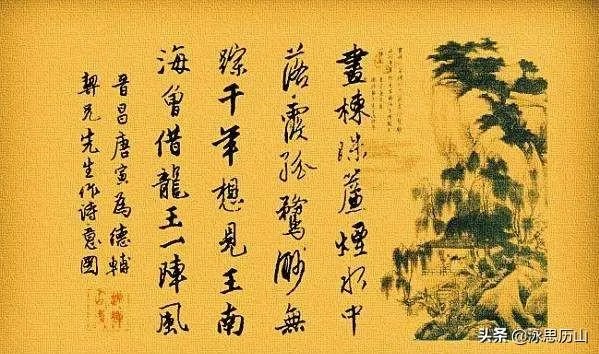 畫棟珠簾煙水中
落霞孤鶩渺無
踪千年想見王南
海曾借龍王一陣風
晋昌唐寅為德輔
契兄先生作诗意圖
头条 @泳思历山